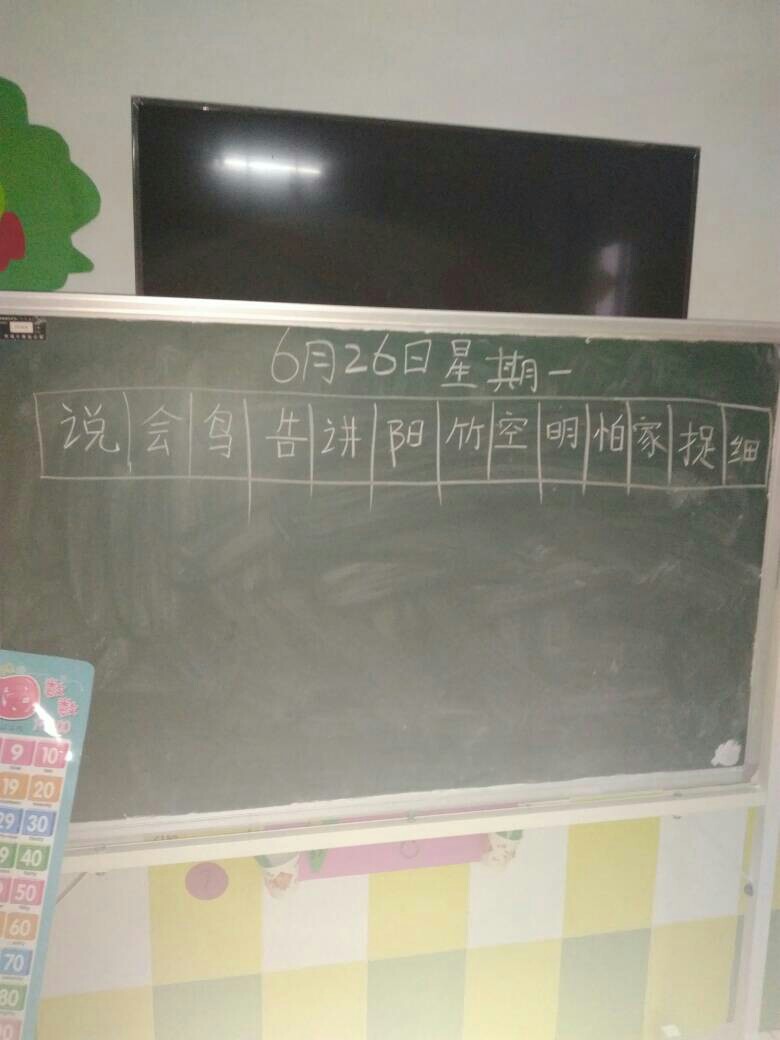 6月26日星期一
说 会 鸟 告 讲 阳 竹 空 明 怕 家 捉 细
数数
9 10
19 20
29 30
9 40
50
60
70
80